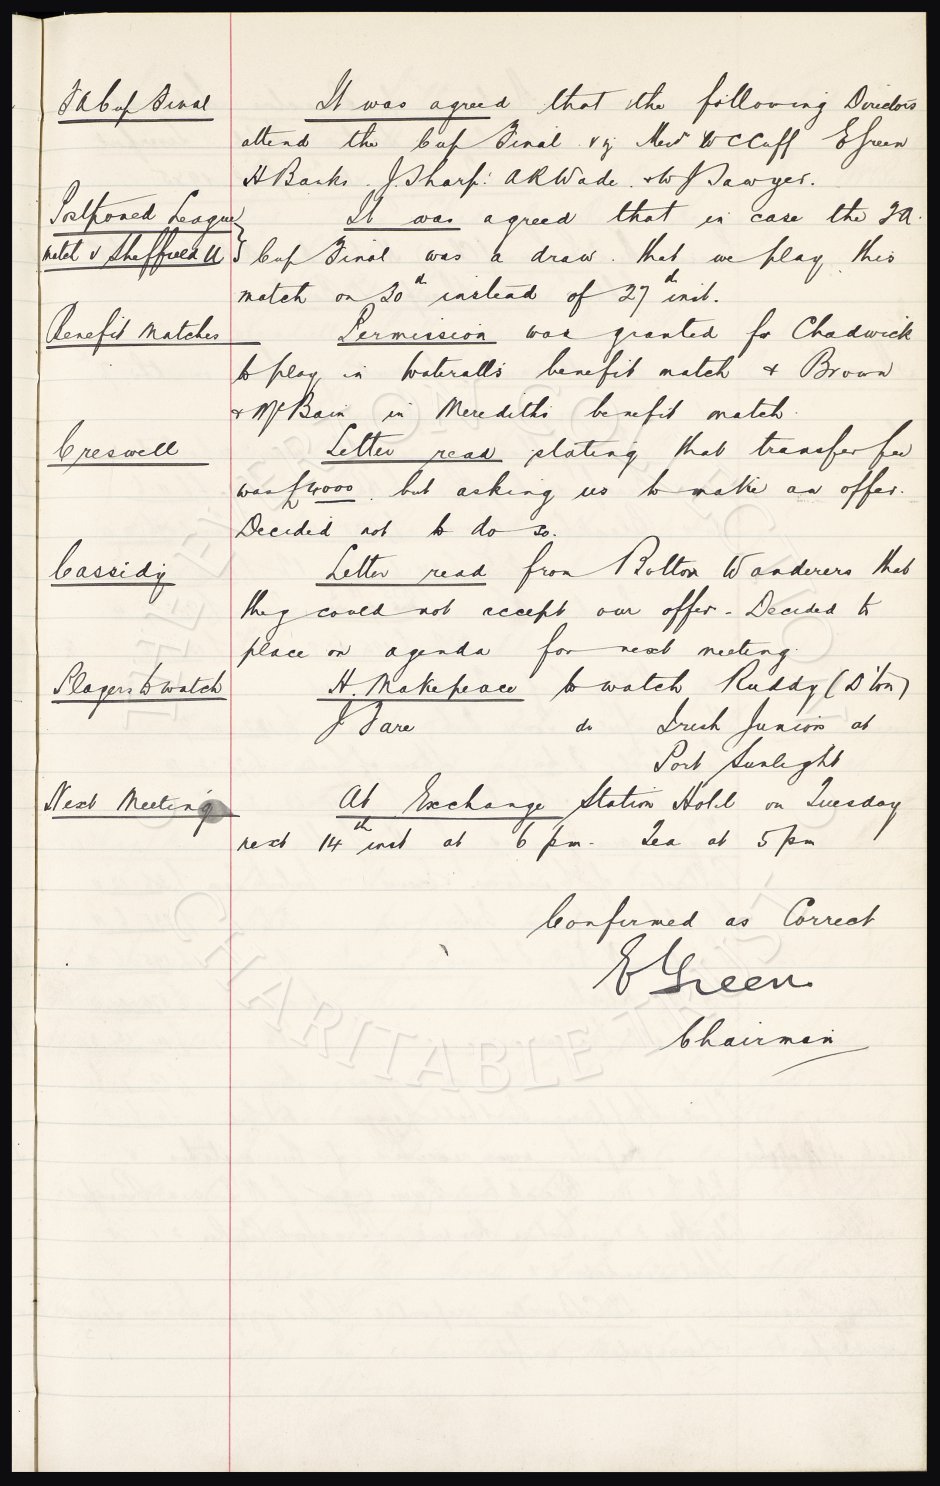 FA Cup Final It was agreed that the following Directors
attend the Cup Final viz Mess W C Cuff E Green
H Banks. J. Sharp. A R Wade. & W J Sawyer.
Postponed League It was agreed that in case the FA.
match v Sheffield U Cup Final was a draw. that we play this
match on 20th instead of 27th inst.
Benefit Matches Permission was granted for Chadwick
to play in Waterall's benefit match & Brown
& McBain in Merediths benefit match.
Creswell Letter read stating that transfer fee
was £4000. but asking us to make an offer.
Decided not to do so.
Cassidy Letter read from Bolton Wanderers that
they could not accept our offer. Decided to
place on agenda for next meeting.
Players to watch H. Makepeace to watch Ruddy (D'ton)
J Fare do Irish Juniors at
Port Sunlight
Next Meeting At Exchange Station Hotel on Tuesday
next 14th inst at 6 pm. Tea at 5 pm
Confirmed as Correct
E Green
Chairman
THE EVERTON COLLECTION
CHARITABLE TRUST